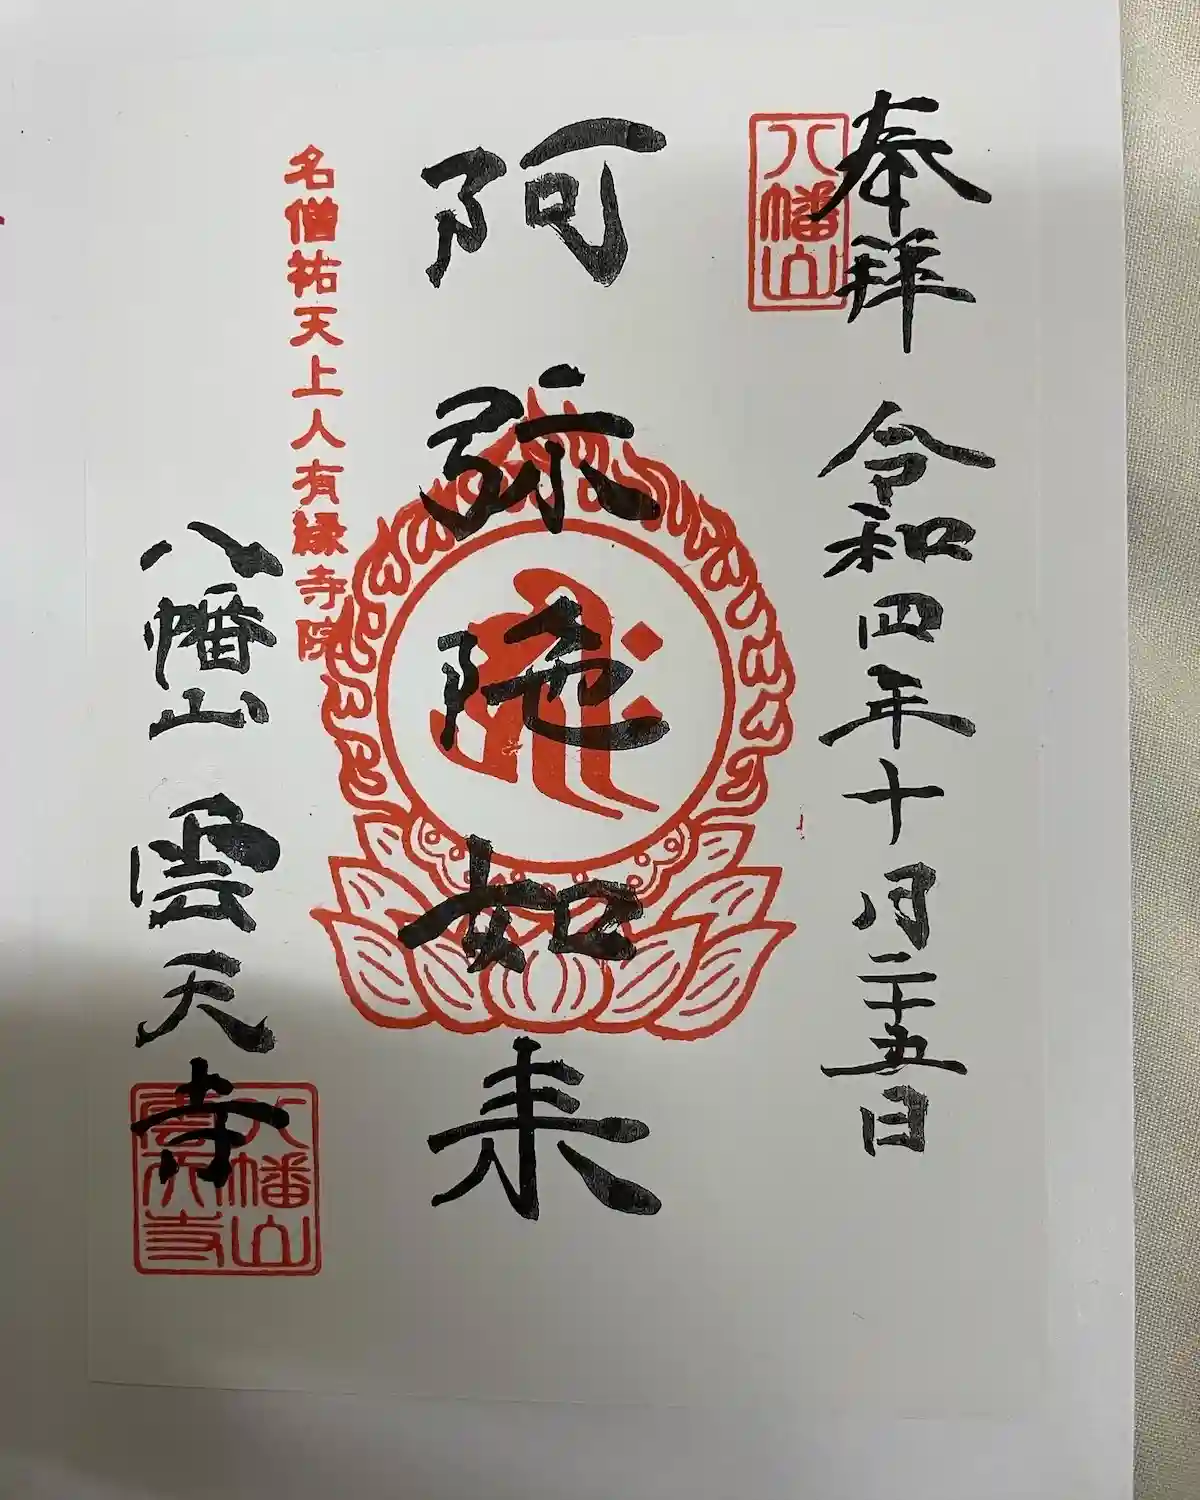 奉拝 令和四年十月二十五日
八幡山
阿弥陀如来
名僧祐天上人有縁寺院
八幡山 雲天寺
八幡山
雲天寺